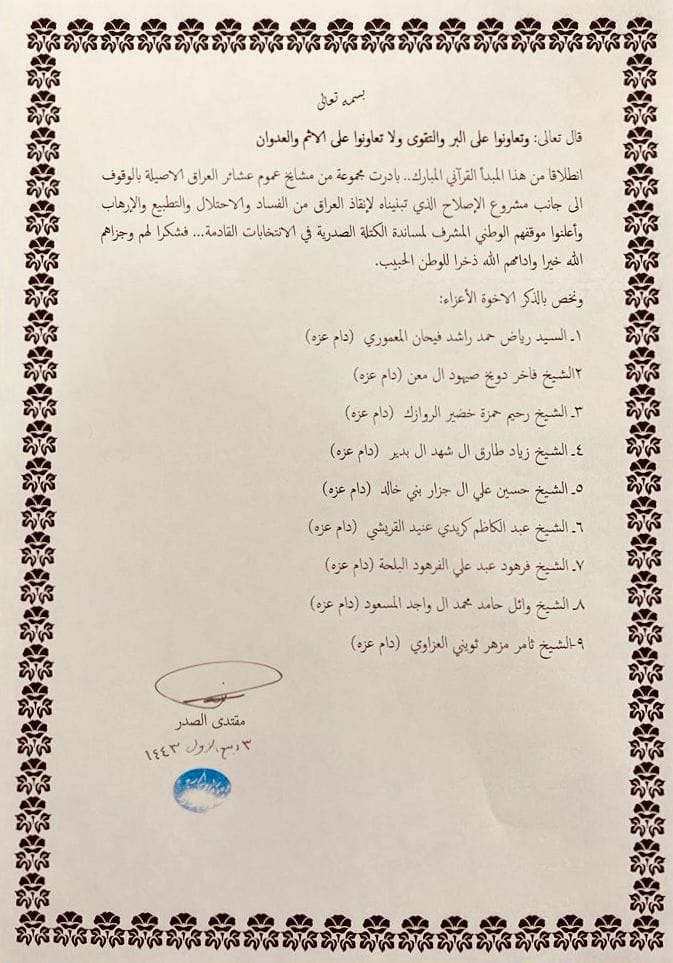 بسمه تعالى
قال تعالى: وتعاونوا على البر والتقوى ولا تعاونوا على الاثم والعدوان
انطلاقا من هذا المبدأ القرآني المبارك.. بادرت مجموعة من مشايخ عموم عشائر العراق الاصيلة بالوقوف
الى جانب مشروع الإصلاح الذي تبنيناه لإنقاذ العراق من الفساد والاحتلال والتطبيع والإرهاب
وأعلنوا موقفهم الوطني المشرف لمساندة الكتلة الصدرية في الانتخابات القادمة... فشكرا لهم وجزاهم
الله خيرا وادامهم الله ذخرا للوطن الحبيب.
ونخص بالذكر الاخوة الأعزاء:
١ـ السيد رياض حمد راشد فيحان المعموري (دام عزه)
٢الشيخ فاخر دويخ صيهود ال معن (دام عزه)
٣ـ الشيخ رحيم حمزة خضير الروازك (دام عزه)
٤ـ الشيخ زياد طارق ال شهد ال بدير (دام عزه)
٥ـ الشيخ حسين علي ال جزار بني خالد (دام عزه)
٦ـ الشيخ عبد الكاظم كريدي عنيد القريشي (دام عزه)
٧ـ الشيخ فرهود عبد علي الفرهود البلحة (دام عزه)
٨ـ الشيخ وائل حامد محمد ال واجد المسعود (دام عزه)
٩ـالشيخ ثامر مزهر ثويني العزاوي (دام عزه)
مقتدى الصدر
٣ ربيع الاول ١٤٤٣